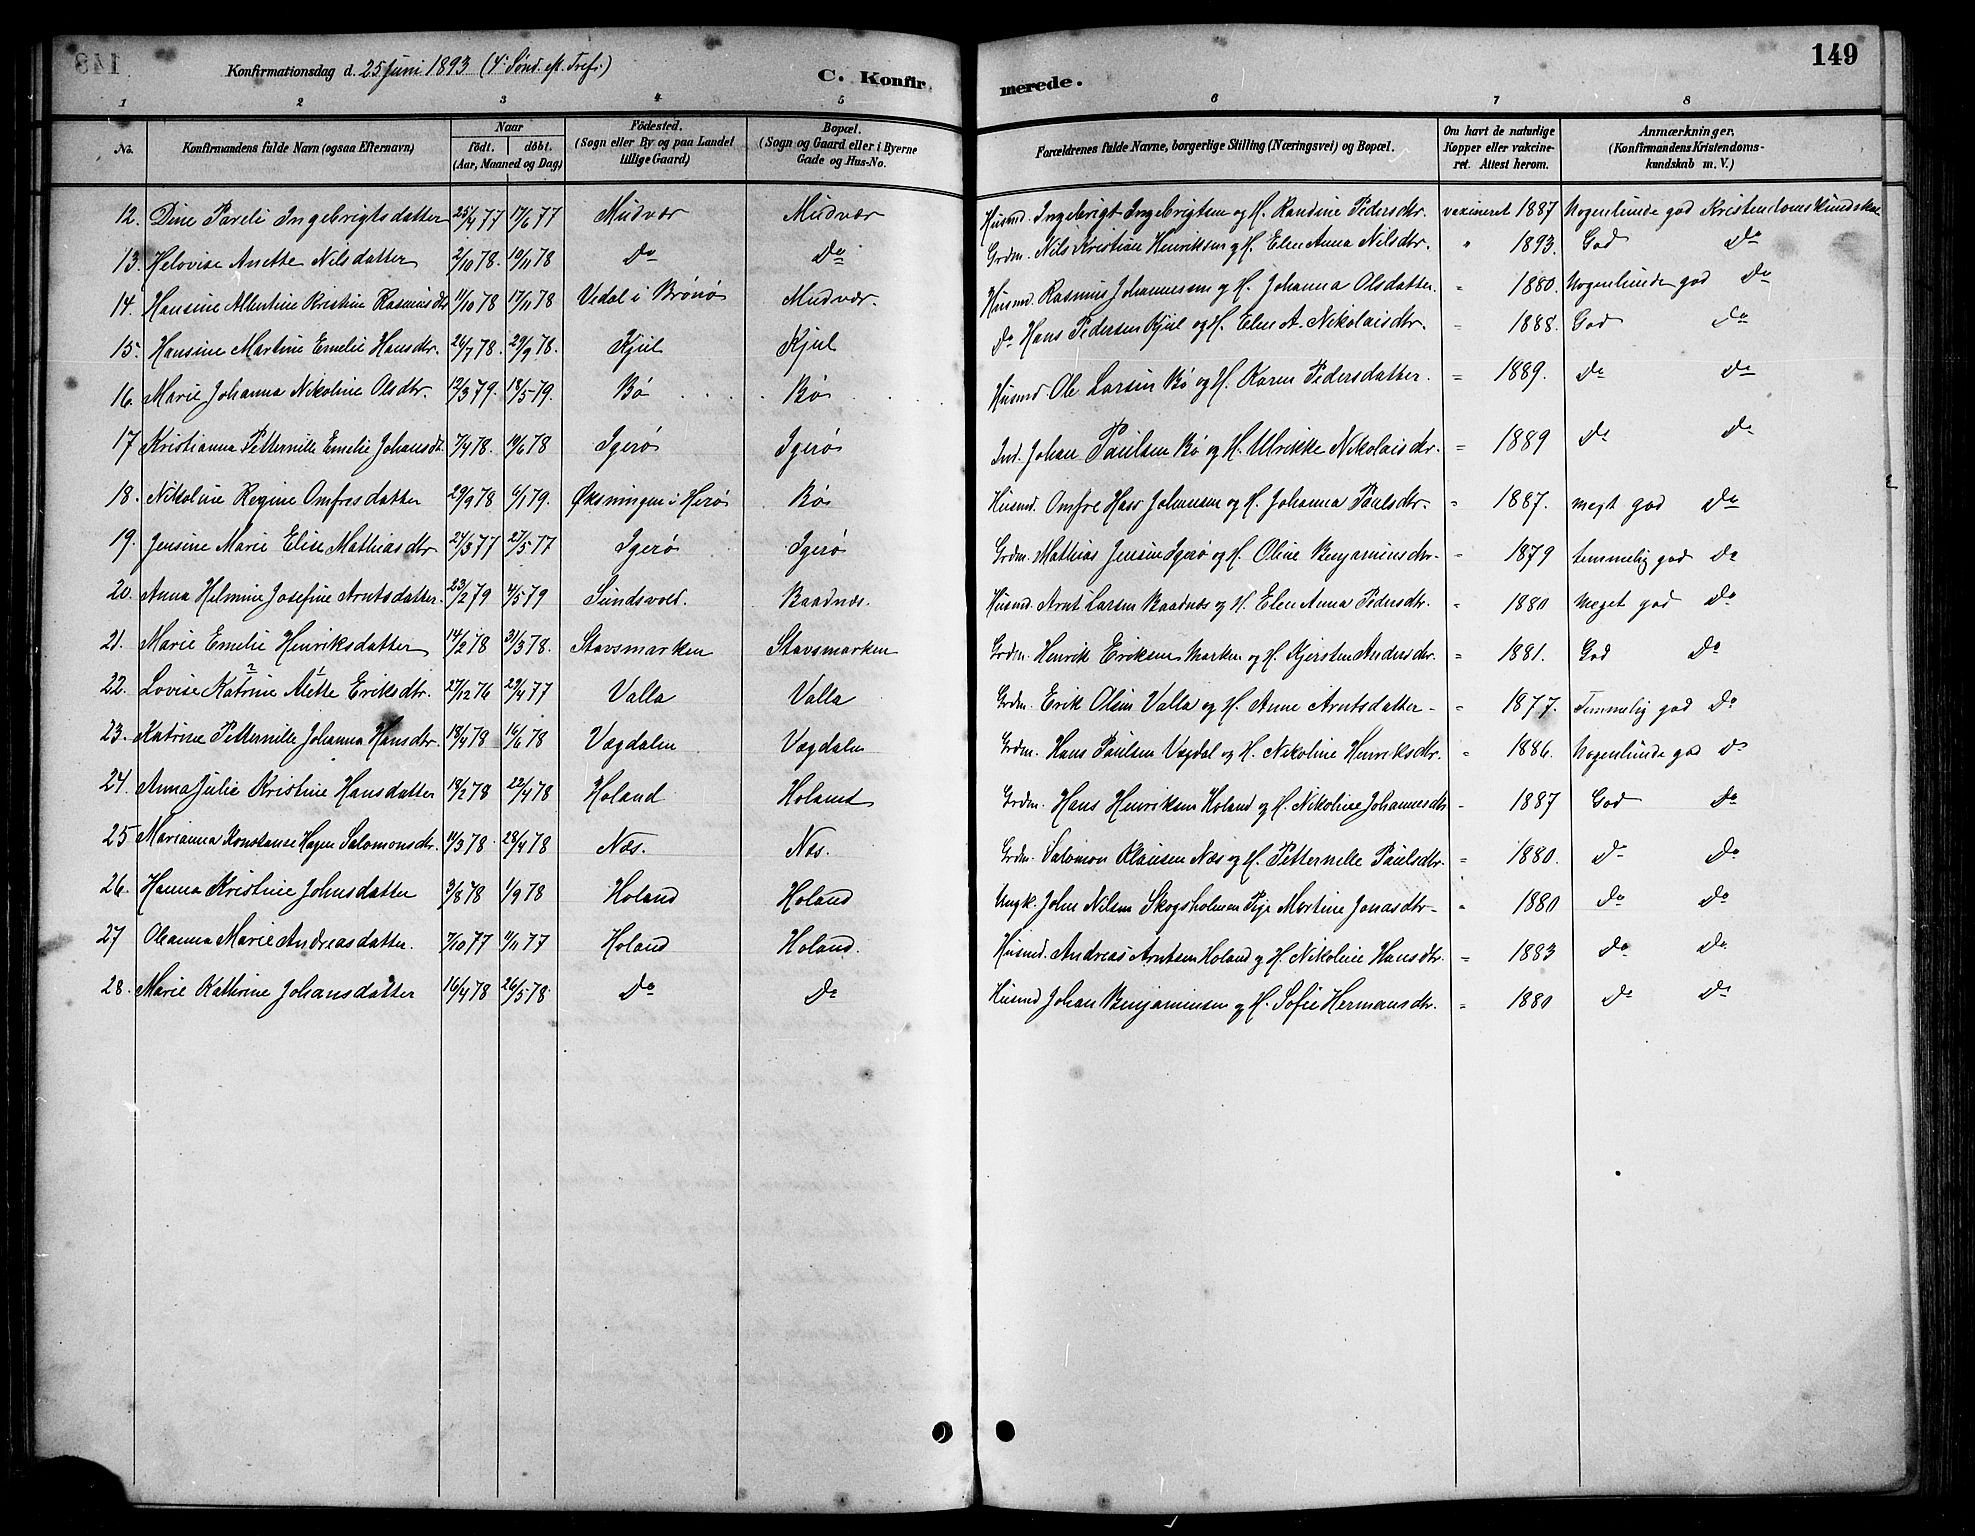 149
Konfirmationsdag d. 25 Juni 1893 (4. Sønd. eft. Tref.)
C. Konfirmerede.
1 2 3 4 5 6 7 8
No. Konfirmandens fulde Navn (ogsaa Efternavn) Naar født. døbt. (Aar, Maaned og Dag) Fødested. (Sogn eller By og paa Landet tillige Gaard) Bopæl. (Sogn og Gaard eller i Byerne Gade og Hus-No. Forældrenes fulde Navne, borgerlige Stilling (Næringsvei) og Bopæl. Om havt de naturlige Kopper eller vakcineret. Attest herom. Anmærkninger, (Konfirmandens Kristendomskundskab m. V.)
12. Dine Pareli Ingebrigtsdatter 25/4 77 17/6 77 Mudvær Mudvær Husmd. Ingebrigt Ingebrigtsen og H. Randine Pedersdtr. vaxineret 1887 Nogenlunde god Kristendomskundskab
13. Helovise Anette Nilsdatter 2/10 78. 10/11 78 Do Do Grdm. Nils Kristian Henriksen og H. Elen Anna Nilsdtr. " 1893. God Do
14. Hansine Allentine Kristine Rasmusdtr 11/10 78 17/11 78 Vedal i Brønø Mudvær. Husmd. Rasmus Johannesen og H. Johanna Olsdatter. " 1880. Nogenlunde god Do
15. Hansine Martine Emelie Hansdtr. 24/7 78. 29/9 78. Kjul Kjul Do Hans Pedersen Kjul og H. Elen A. Nikolaisdtr. " 1888. God Do
16. Marie Johanna Nikoline Olsdtr. 12/3 79. 18/5 79. Bø Bø Husmd. Ole Larsen Bø og H. Karen Pedersdatter. " 1889. Do Do
17 Kristianna Petternille Emelie Johansdt. 7/4 78. 10/6 78 Igerø Igerø Ind. Johan Paulsen Bø og H. Ulrikke Nikolaisdtr. " 1889 Do Do
18. Nikoline Regine Omfresdatter 29/9 78 6/1 79. Øksningen i Herø Bø Husmd. Omfre Hass Johansen og H. Johanna Paulsdtr. " 1887. megt god Do
19. Jensine Marie Elise Mathiasdtr 24/3 77 27/5 77 Igerø Igerø Grdm. Mathias Jensen Igerø og H. Oline Benjaminsdtr. " 1879 temmelig god Do
20. Anna Helmine Josefine Arntsdatter. 23/2 79 4/5 79 Sundsvold. Baadnæs. Husmd. Arnt Larsen Baadnæs og H. Elen Anna Pedersdtr. " 1880 Meget god Do
21. Marie Emelie Henriksdatter 14/2 78 31/3 78. Stavsmarken Stavsmarken Grdm. Henrik Eriksen Marken og H. Kjersten Andersdtr. " 1881. God Do
22. Lovise Katrine Alette Eriksdtr. 27/12 76 29/4 77 Valla Valla Grdm. Erik Olsen Valla og H. Anne Arntsdatter " 1877. Temmelig god Do
23. Katrine Petternille Johanna Hansdtr. 18/4 78 16/6 78 Vægdalen Vægdalen Grdm. Hans Paulsen Vægdal og H. Nikoline Henriksdtr. " 1886. Nogenlunde god Do
24. Anna Julie Kristine Hansdatter 19/2 78 22/4 78 Holand Holand Grdm. Hans Henriksen Holand og H. Nikoline Johannesdtr " 1887 God Do
25 Marianna Konstance Hagen Salomonsdtr. 14/3 78 28/4 78 Næs. Næs. Grdm. Salomon Olausen Næs og H. Petternelle Paulsdtr. " 1880. Do Do
26. Hanna Kristine Johnsdatter 3/8 78 1/9 78 Holand Holand Ungk. John Nilsen Skogsholmen Pige Martine Jonasdtr " 1880 Do Do
27 Oleanna Marie Andreasdatter. 7/10 77 4/11 77 Holand Holand. Husmd. Andreas Arntsen Holand og H. Nikoline Hansdtr. " 1883 Do Do
28. Marie Kathrine Johansdatter 16/4 78 26/5 78 Do Do Husmd Johan Benjaminsen og H. Sofie Hermansdtr. " 1880 Do Do